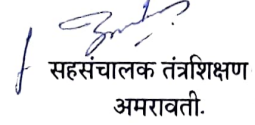 सहसंचालक तंत्रशिक्षण
अमरावती.